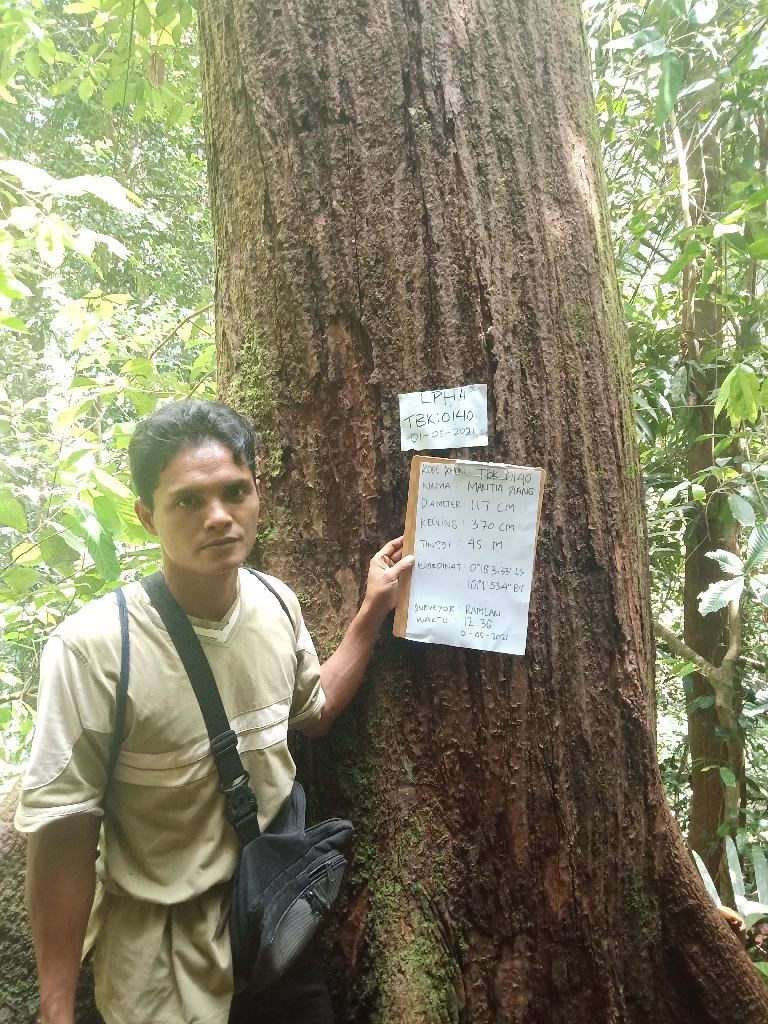 LPHA
TBK:0140
01-05-2021
KODE POHON TBK 0140
NAMA : MANTIA PIANG
DIAMETER : 117 CM
KELILING : 370 CM
TINGGI : 45 M
KOORDINAT : 0°18'3.33" LS
SURVEYOR : RAMLAN
WAKTU : 12.36
01-05-2021